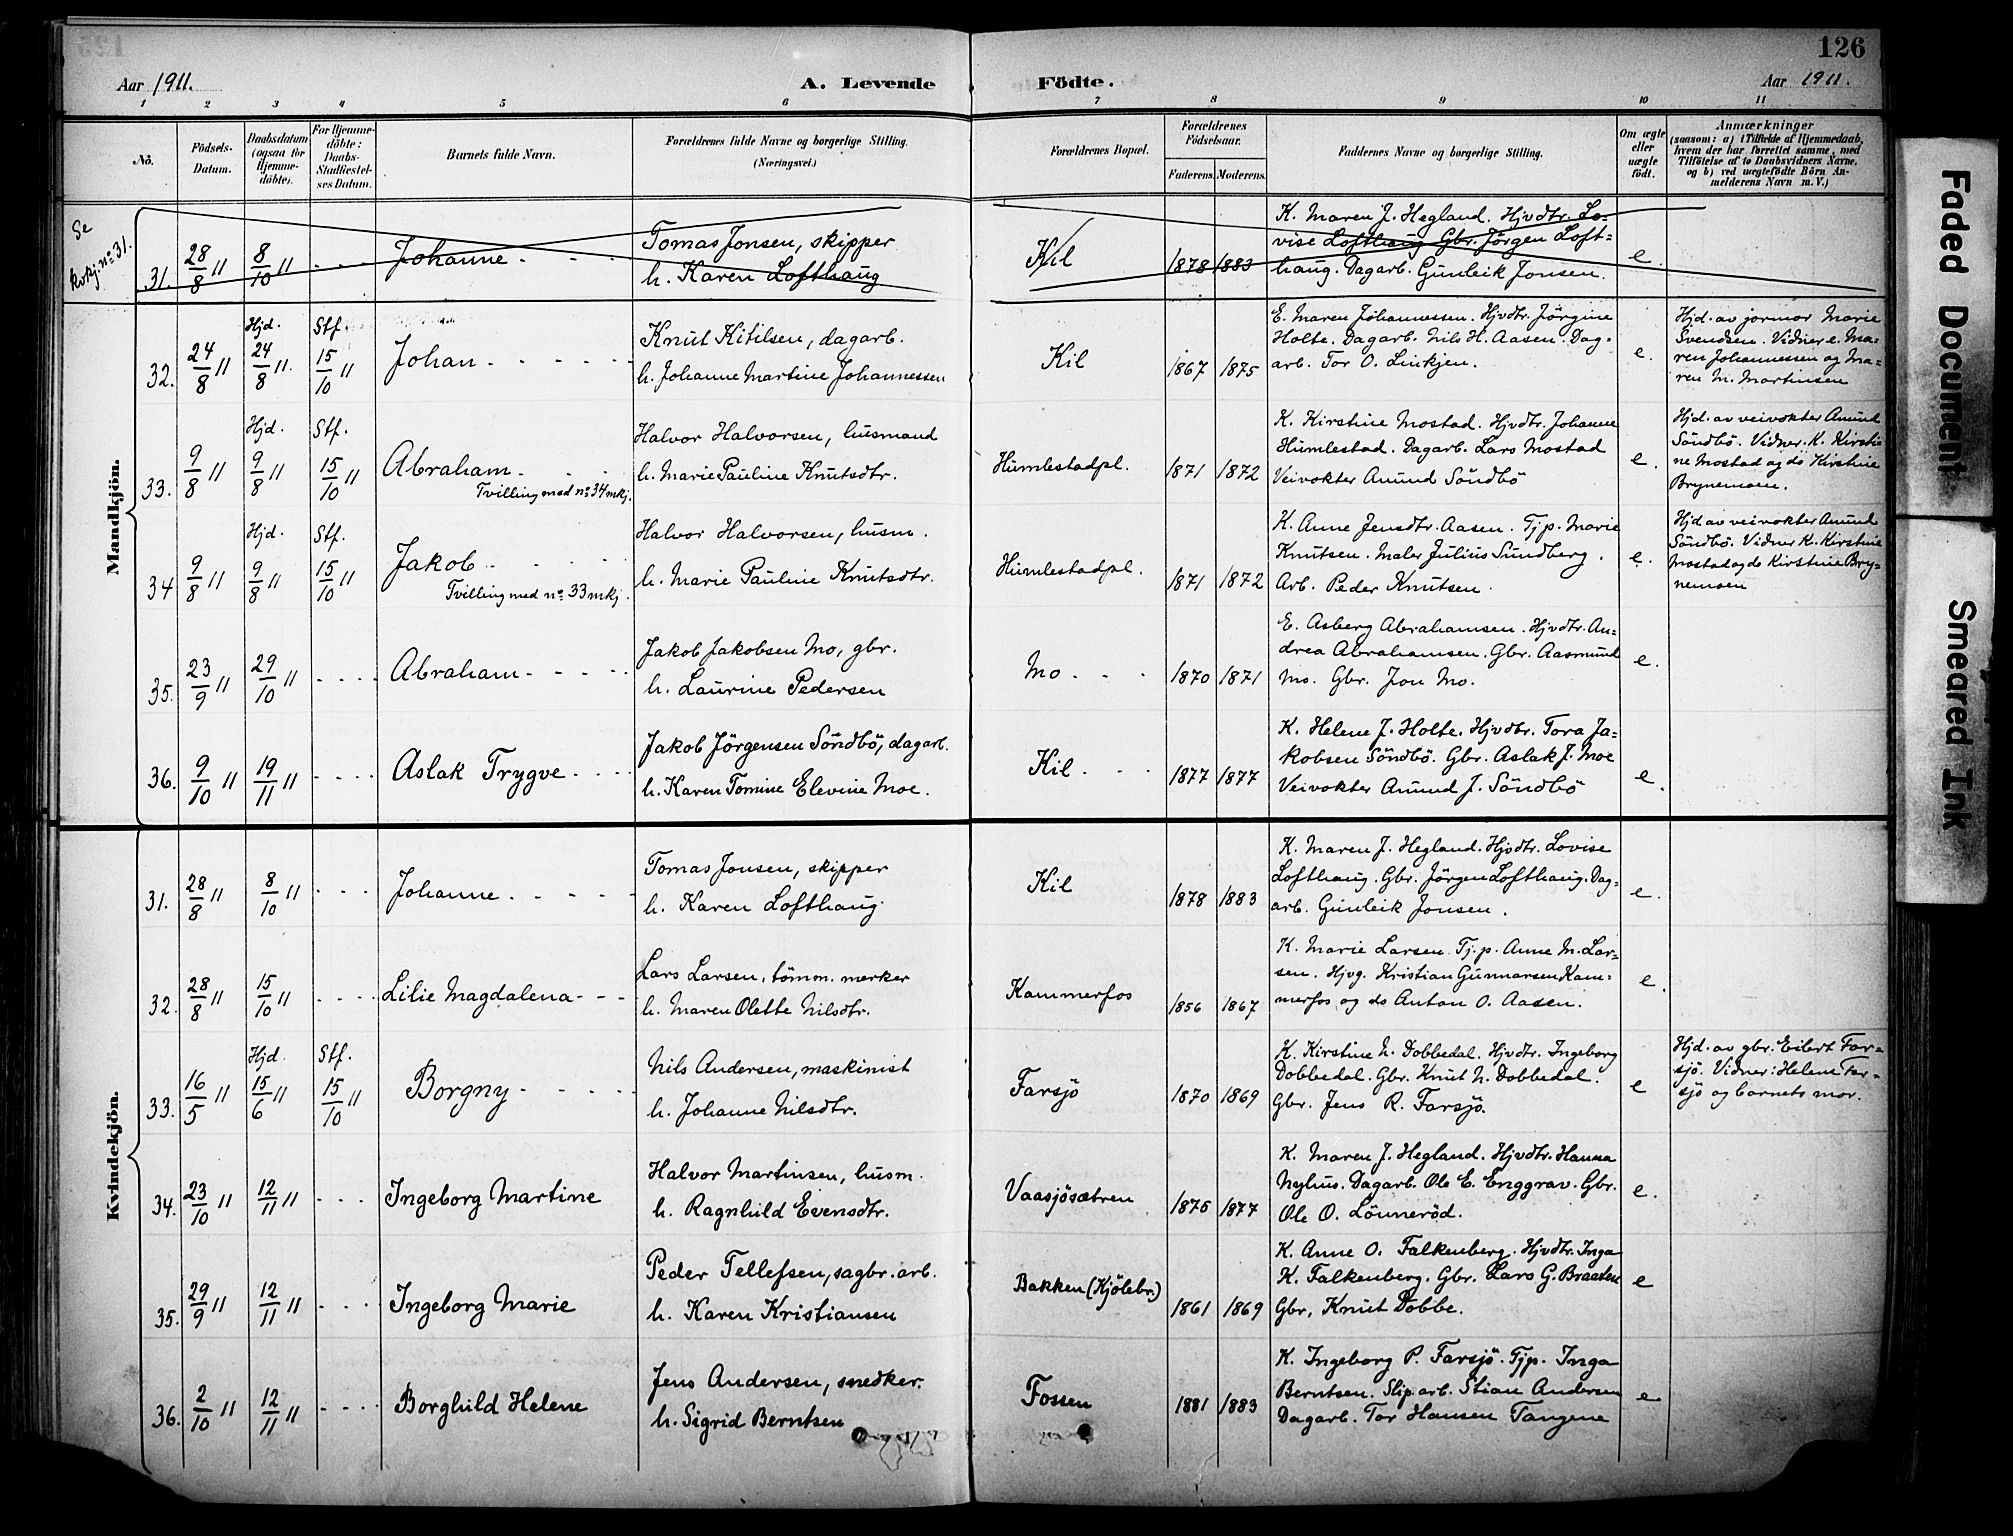 126
Aar 1911. A. Levende Födte. Aar 1911.
1 2 3 4 5 6 7 8 9 10 11
No.
Födsels-
Datum.
Daabsdatum
(ogsaa for
Hjemme-
döbte).
For Hjemme-
döbte:
Daabs-
Stadfæstel-
ses Datum.
Barnets fulde Navn.
Forældrenes fulde Navne og borgerlige Stilling.
(Næringsvei.)
Forældrenes Bopæl.
Forældrenes
Födselsaar.
Faderens. Moderens.
Faddernes Navne og borgerlige Stilling.
Om ægte
eller
uægte
födt.
Anmærkninger
(saasom: a) i Tilfælde af Hjemmedaab,
hvem der har forrettet samme, med
Tilföielse af to Daabsvidners Navne,
og b) ved uægtefödte Börn An-
melderens Navn m. V.)
Mandkjön.
Se
kvkj. no 31.
31. 28/8 11 8/10 11 Johanne
Tomas Jonsen, skipper
h. Karen Lofthaug
Kil 1878 1883
K. Maren J. Hegland. Hjvdtr. Lo-
vise Lofthaug Gbr. Jörgen Loft-
haug. Dagarb. Gunleik Jonsen.
e.
32. 24/8 11 Hjd. 24/8 11. Stf. 15/10 11 Johan
Knut Kitilsen, dagarb.
h. Johanne Martine Johannessen
Kil 1867 1875
E. Maren Johannessen. Hjvdtr. Jörgine
Holte. Dagarb. Nils H. Aasen. Dag-
arb. Tor O. Linkjen.
e.
Hjd. av jormor Marie
Svendsen. Vidner e. Ma-
ren Johannessen og Ma-
ren M. Martinsen
33. 9/8 11 Hjd. 9/8 11 Stf. 15/10 11 Abraham
Tvilling med no 34 mkj.
Halvor Halvorsen, husmand
h. Marie Pauline Knutsdtr.
Humlestadpl. 1871 1872
K. Kirstine Mostad. Hjvdtr. Johanne
Humlestad. Dagarb. Lars Mostad
Veivokter Amund Söndbö
e.
Hjd. av veivokter Amund
Söndbö. Vidner. K. Kirsti-
ne Mostad og do Kirstine
Brynemoen.
34 9/8 11 Hjd. 9/8 11 Stf. 15/10 11 Jakob
Tvilling med no 33 mkj.
Halvor Halvorsen, husm.
h. Marie Pauline Knutsdtr.
Humlestadpl. 1871 1872
K. Anne Jensdtr. Aasen. Tjp. Marie
Knutsen. Maler Julius Sundberg.
Arb. Peder Knutsen.
e.
Hjd av veivokter Amund
Söndbö. Vidner K. Kirstine
Mostad og do Kirstine Bry-
nemoen
35. 23/9 11 29/10 11 Abraham
Jakob Jakobsen Mo, gbr.
h. Laurine Pedersen
Mo 1870 1871
E. Asberg Abrahamsen. Hjvdtr. An-
drea Abrahamsen. Gbr. Aasmund
Mo. Gbr. Jon Mo.
e.
36. 9/10 11 19/11 11 Aslak Trygve
Jakob Jörgensen Söndbö, dagarb.
h. Karen Tomine Elevine Moe.
Kil 1877 1877
K. Helene J. Holte. Hjvdtr. Tora Ja-
kobsen Söndbö. Gbr. Aslak J. Moe
Veivokter Amund J. Söndbö
e.
Kvindekjön.
31. 28/8 11 8/10 11 Johanne
Tomas Jonsen, skipper
h. Karen Lofthaug.
Kil 1878 1883
K. Maren J. Hegland. Hjvdtr. Lovise
Lofthaug. Gbr. Jörgen Lofthaug. Dag-
arb. Gunleik Jonsen.
e.
32. 28/8 11 15/10 11 Lilie Magdalena
Lars Larsen, tömm. merker
h. Maren Olette Nilsdtr.
Kammerfos 1856 1867
K. Marie Larsen. Tj. p. Anne M. Lar-
sen. Hjvg. Kristian Gunnarsen Kam-
merfos og do Anton O. Aasen.
e.
33. 16/5 11 Hjd. 15/6 11 Stf. 15/10 11 Borgny
Nils Andersen, maskinist
h. Johanne Nilsdtr.
Farsjö 1870 1869
K. Kirstine N. Dobbedal. Hjvdtr. Ingeborg
Dobbedal. Gbr. Knut N. Dobbedal.
Gbr. Jens R. Farsjö.
e
Hjd. av gbr. Eilert Far-
sjö. Vidner: Helene Far-
sjö og barnets mor.
34. 23/10 11 12/11 11 Ingeborg Martine
Halvor Martinsen, husm.
h. Ragnhild Evensdtr.
Vaasjösætren 1875 1877
K. Maren J. Hegland. Hjvdtr. Hanna
Nyhus. Dagarb. Ole E. Enggrav. Gbr.
Ole O. Lönneröd.
e.
35. 29/9 11 12/11 11 Ingeborg Marie
Peder Tellefsen, sagbr. arb.
h. Karen Kristiansen
Bakken (Kjölebr.) 1861 1869
K. Anne O. Falkenberg. Hjvdtr. Inga
K. Falkenberg. Gbr. Lars G. Braaten
Gbr, Knut Dobbe.
e
36. 2/10 11 12/11 11 Borghild Helene
Jens Andersen, snedker.
h. Sigrid Berntsen
Fossen 1881 1883
K. Ingeborg P. Farsjö. Tjp. Inga
Berntsen. Slip. arb. Stian Andersen
Dagarb. Tor Hansen Tangene
e
Faded Document
Smeared Ink